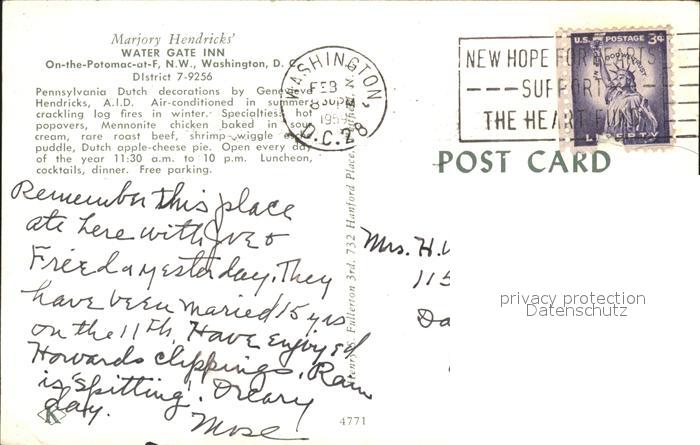 Marjory Hendricks'
WATER GATE INN
On-the-Potomac-at-F, N.W., Washington, D. C.
DIstrict 7-9256
Pennsylvania Dutch decorations by Genevieve
Hendricks, A.I.D. Air-conditioned in summer,
crackling log fires in winter. Specialties: hot
popovers, Mennonite chicken baked in sour
cream, rare roast beef, shrimp wiggle
puddle, Dutch apple-cheese pie. Open every day
of the year 11:30 a.m. to 10 p.m. Luncheon,
cocktails, dinner. Free parking.
Remember this place
ate here with Joe &
Frieda yesterday. They
have been maried 15 yrs
on the 11th. Have enjoyed
Howards clippings. Rain
is 'spitting'. Dreary
day.
Mose
K
4771
Fullerton 3rd, 732 Hanford Place,
WASHINGTON
FEB
8
1959
D.C. 28
NEW HOPE FOR HEARTS
SUPPORT
THE HEART FUND
U.S. POSTAGE 3¢
IN GOD WE TRUST
LIBERTY
POST CARD
Mrs. H.
115
Da
privacy protection
Datenschutz